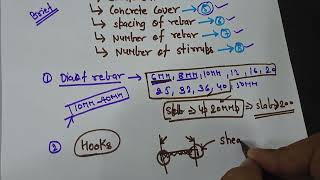 Brief
↳ Concrete Cover → ⑤
↳ spacing of rebar → ⑥
↳ Number of rebar → ⑦
↳ Number of stirrups → ⑧
① Dia of rebar → 6MM, 8MM, 10MM, 12, 16, 20
25, 32, 36, 40, 50MM
10MM-40MM
Slab ⇒
⇒ slab > 200
② Hooks
shea